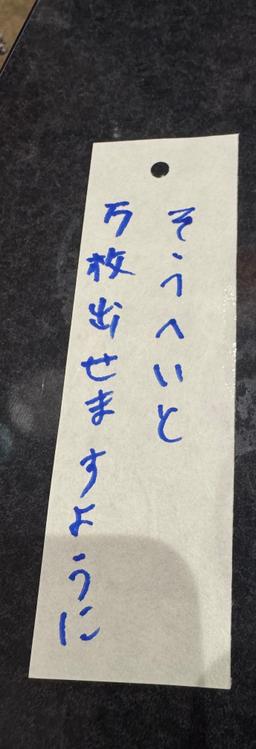 そうへいと
万枚出せますように